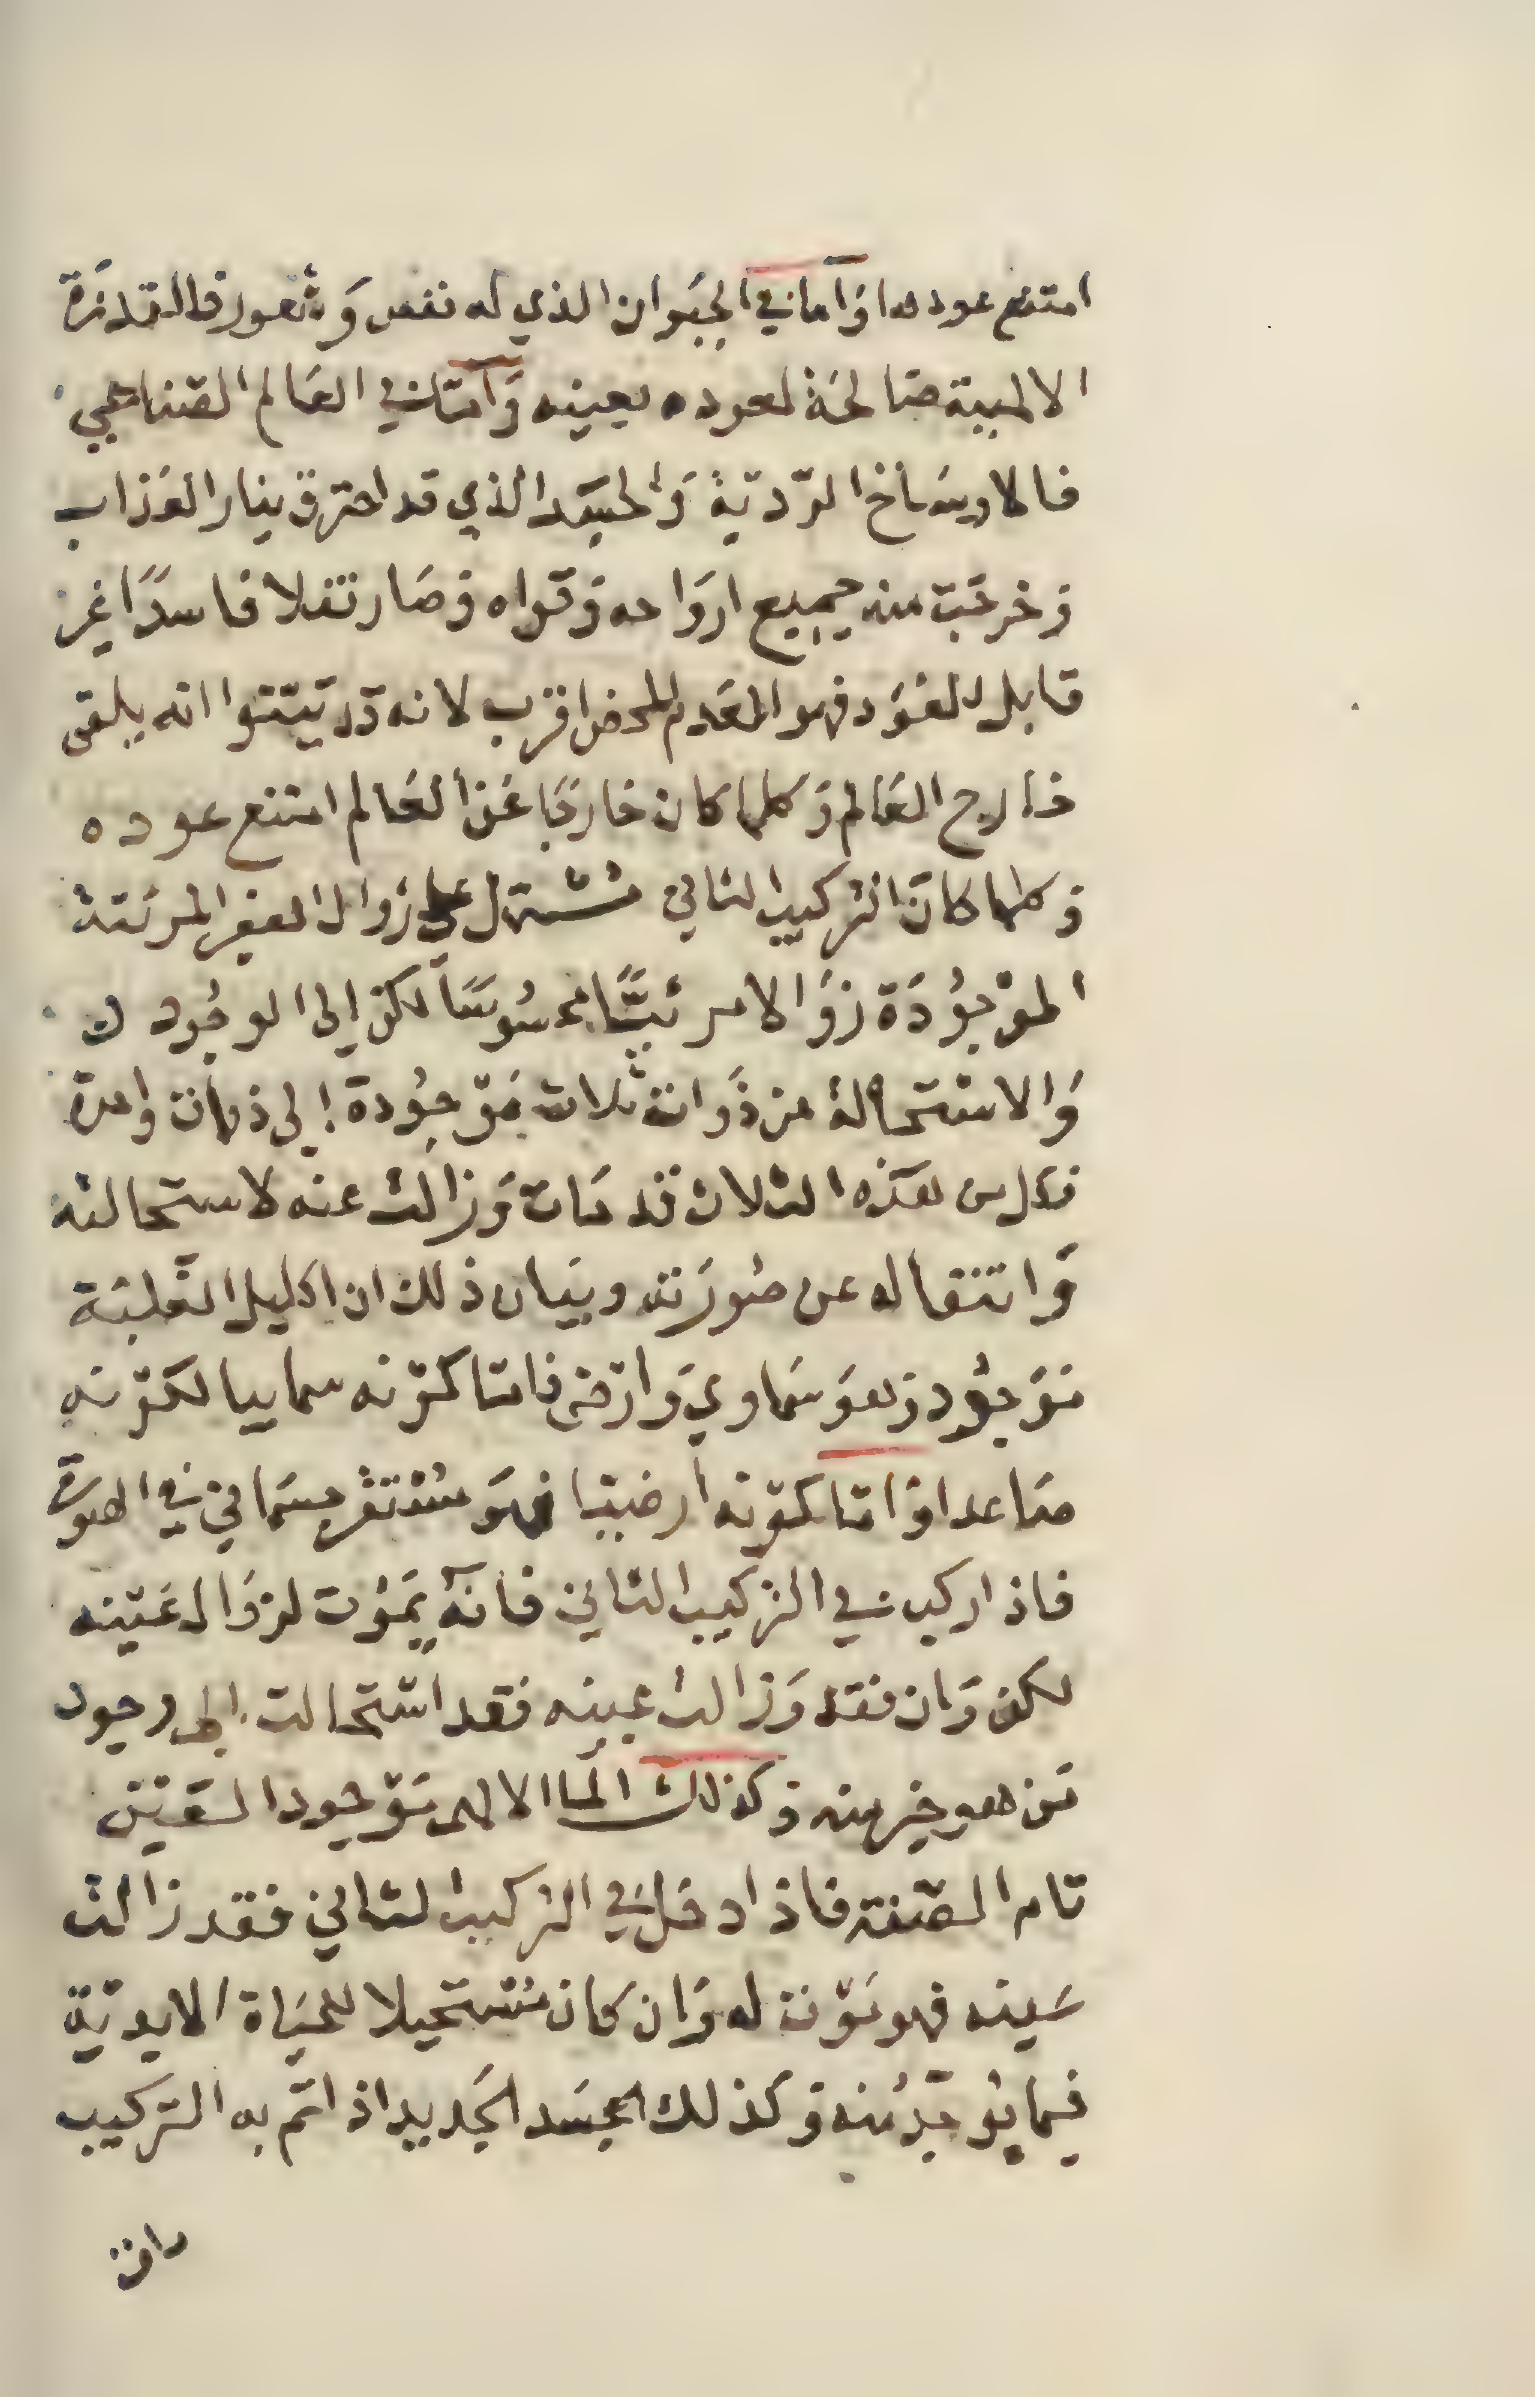 امتنع عودها وَاما في الحيَوان الذي له نفس وَشعور فالقدرَة
الالهية صَالحَة لعوده بعينه وَامّا في العَالم الصّناعي
فالاوسَاخ الرّديّة وَالجسَد الذي قد احترق بنار العَذاب
وَخرجَت منه جميع اروَاحه وَقواه وَصَار تفلا فاسدًا غير
قابل للعَوَد فهو للعَدم المحض اقرب لانه قد بيّنوا انه يلقى
خارج العَالم وَكلما كان خارجًا عَن العَالم امتنع عوده
وَكلما كانَ التركيب الثاني مشتمل على زوال العين المرئية
الموْجوُدَة زوَالا مرئيًّا محسُوسًا لكن الى الوجُود
وَالاسْتحَالة من ذَوات ثلاث مَوْجوُدة الى ذات واحدة
فكل من هَذه الثلاث قد مَات وَزالت عنه لاستحالته
وَانتقاله عن صُورَته وبيَان ذلك ان اكليل الغَلبَة
مَوَجوُد وَهوَ سَماوي وَارْضى فامّا كوْنه سماييا لكوْنه
صَاعدا وَامّا كوْنه ارضيّا فهوَ مسْتقر جسمَاني في الصّورَة
فاذا ركب في التركيب الثاني فانّه يَموُت لزوَال عَيْنه
لكن وَان فقد وَزالت عينه فقد اسْتحَالت الى وجود
مَن هو خير منه وَكذلك المَا الالهى مَوْجود العَيْن
تام الصّفة فاذا دخل في التركيب الثاني فقد زالت
عَينه فهو مَوْت له وَان كان مُسْتحيلا للحيَاة الابديّة
فيما يوُجَدُ منه وَكذلك الجسَد الجَديد اذا تم به التركيب